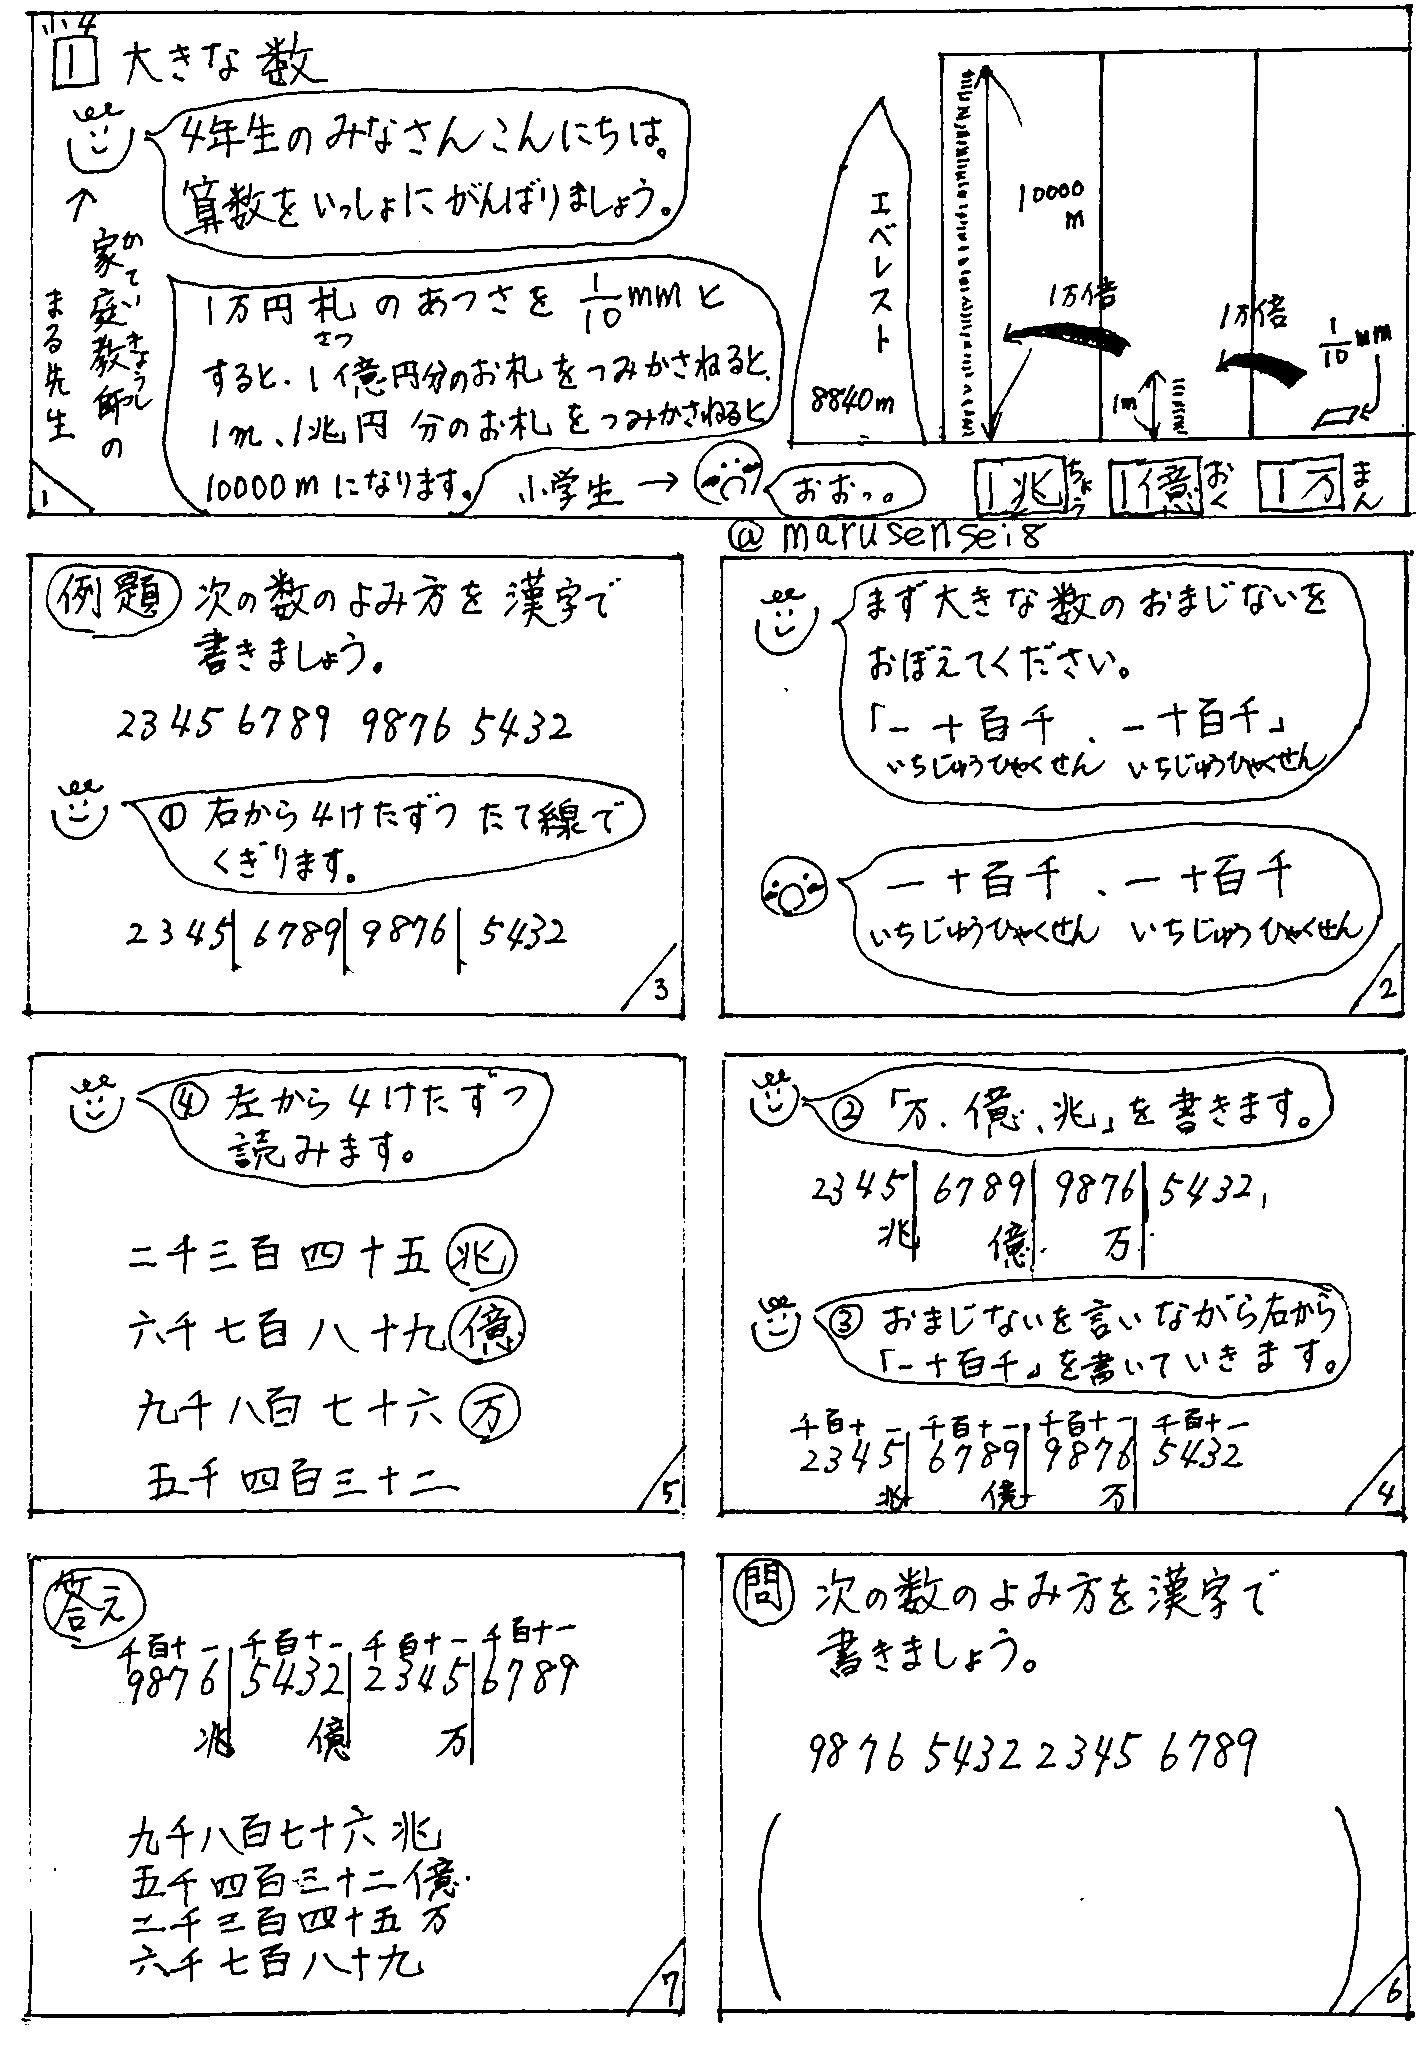 小4
1 大きな数
4年生のみなさんこんにちは。
算数をいっしょにがんばりましょう。
かていきょうし
家庭教師の
まる先生
1万円札のあつさを1/10mmと
さつ
すると、1億円分のお札をつみかさねると、
1m、1兆円分のお札をつみかさねると
10000mになります。
小学生→
おおっ。
エベレスト
8840m
10000
m
1万倍
1m
1万倍
1/10mm
1兆 ちょう
1億 おく
1万 まん
1
@marusensei8
まず大きな数のおまじないを
おぼえてください。
「一十百千、一十百千」
いちじゅうひゃくせん いちじゅうひゃくせん
一十百千、一十百千
いちじゅうひゃくせん いちじゅうひゃくせん
2
例題 次の数のよみ方を漢字で
書きましょう。
2345 6789 9876 5432
① 右から4けたずつたて線で
くぎります。
2345|6789|9876|5432
3
②「万、億、兆」を書きます。
2345|6789|9876|5432
兆 億 万
③ おまじないを言いながら右から
「一十百千」を書いていきます。
千百十一 千百十一 千百十一 千百十一
2345|6789|9876|5432
兆 億 万
4
④ 左から4けたずつ
読みます。
二千三百四十五兆
六千七百八十九億
九千八百七十六万
五千四百三十二
5
問 次の数のよみ方を漢字で
書きましょう。
9876 5432 2345 6789
( )
6
答え
千百十一 千百十一 千百十一 千百十一
9876|5432|2345|6789
兆 億 万
九千八百七十六兆
五千四百三十二億
二千三百四十五万
六千七百八十九
7